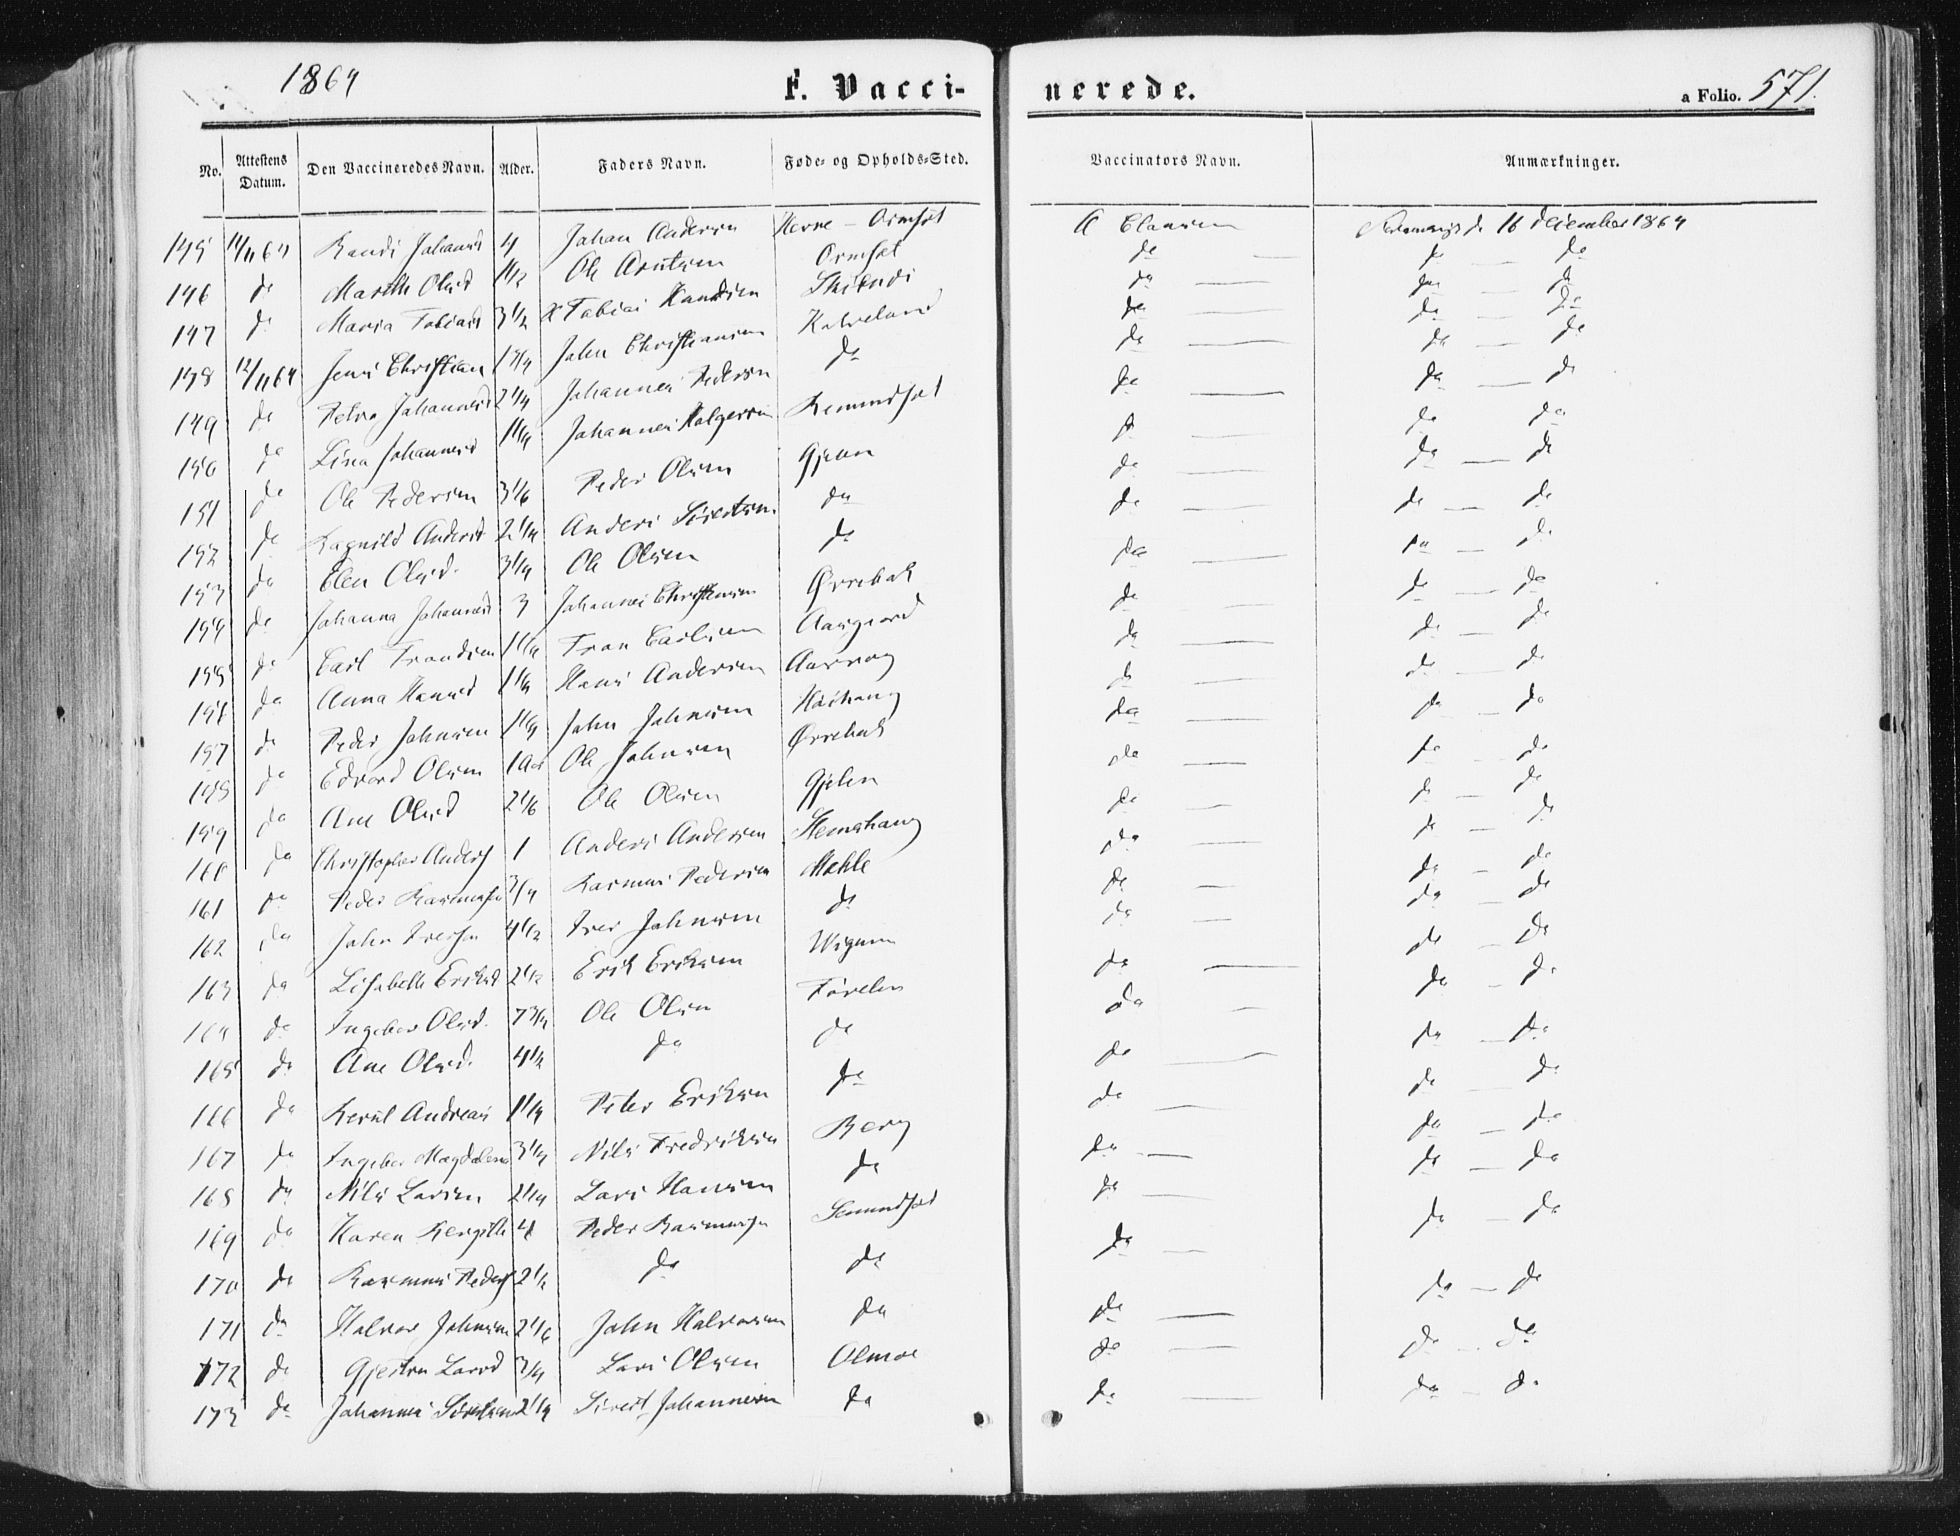 1864 F. Vacci- nerede. a Folio. 571.
No. Attestens Datum. Den Vaccineredes Navn. Alder. Faders Navn. Føde- og Opholds-Sted. Vaccinators Navn. Anmærkninger.
145 11/11 64 Randi Johansd 4 Johan Andersen Hevne - Ormset A Clausen 16 December 1864
146 do Marth Olsd 1 1/2 Ole Arntsen Ormset do do do
147 do Maria Tobiasd 3 1/2 x Tobias Hansen do do do
148 12/11 64 Jens Christian 1 3/4 John Christiansen do do do
149 do Petra Johannesd 2 1/4 Johannes Pedersen do do do do
150 do Lina Johannesd 1 1/4 Johannes Holgersen do do do
151 do Ole Pedersen 3 1/6 Peder Olsen do do do
152 do Ragnild Andersd 2 1/4 Anders Sivertsen do do do do
153 do Elen Olsd. 3 1/4 Ole Olsen do do do do
154 do Johanna Johannesd 3 Johannes Christensen Ørrebak do do do
155 do Carl Trondsen 1 1/4 Tron Carlsen Aasgaard do do do
156 do Anna Hansd 1 1/4 Hans Andersen do do do
157 do Peder Johnsen 1 1/4 John Johnsen do do do
158 do Edvard Olsen 1 Ole Johnsen Ørrebak do do do
159 do Ane Olsd 2 1/6 Ole Olsen Gjelen do do do
160 do Christopher Anders 1 Anders Andersen Stemshaug do do do
161 do Peder Rasmusen 3/4 Rasmus Pedersen do do do
162 do John Iversen 4 1/2 Iver Johnsen do do do do
163 do Lisabeth Eriksd 2 1/2 Erik Eriksen do do do
164 do Ingebor Olsd. 7 3/4 Ole Olsen do do do
165 do Ane Olsd. 4 1/2 do do do do do
166 do Bernt Andreas 1 1/4 Peter Eriksen do do do do
167 do Ingebor Magdalena 3 1/4 Nils Fredriksen Berg do do do
168 do Nils Larsen 2 1/4 Lars Hansen do do do do
169 do Karen Bergithe 4 Peder Rasmusen do do do
170 do Rasmus Peders 2 1/2 do do do do do
171 do Halvor Johnsen 2 1/6 John Halvorsen do do do do
172 do Larsd 3/4 Lars Olsen Olmoe do do do
173 do Johannes Sivertsen 2 1/4 Sivert Johannesen do do do do